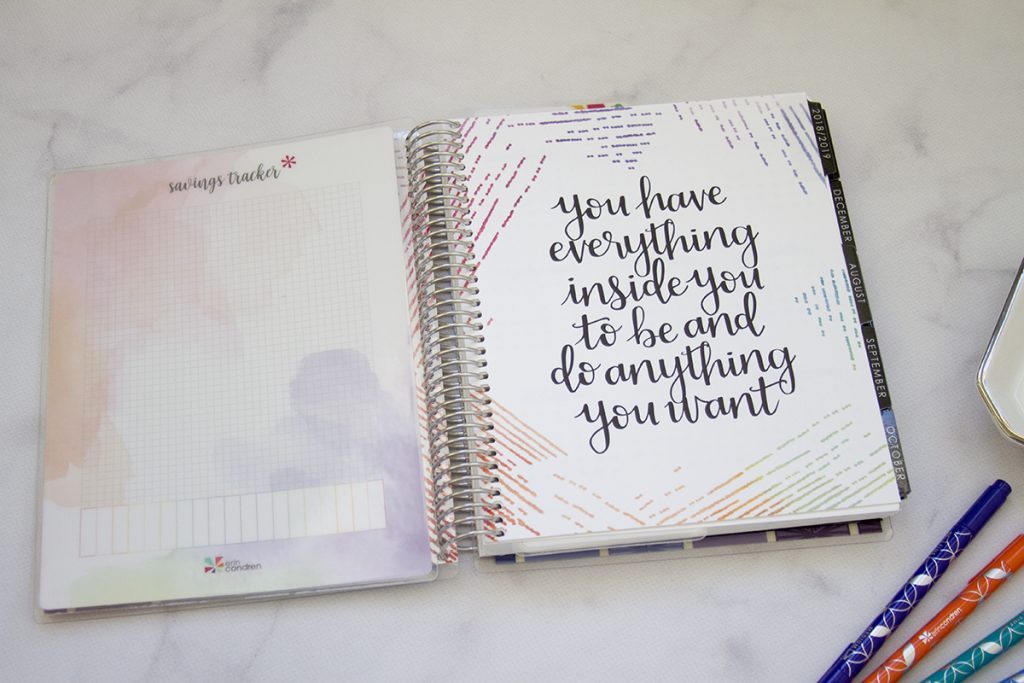 savings tracker*
erin
condren
you have
everything
inside you
to be and
do anything
you want
2018/2019
DECEMBER
AUGUST
SEPTEMBER
OCTOBER
erincondren